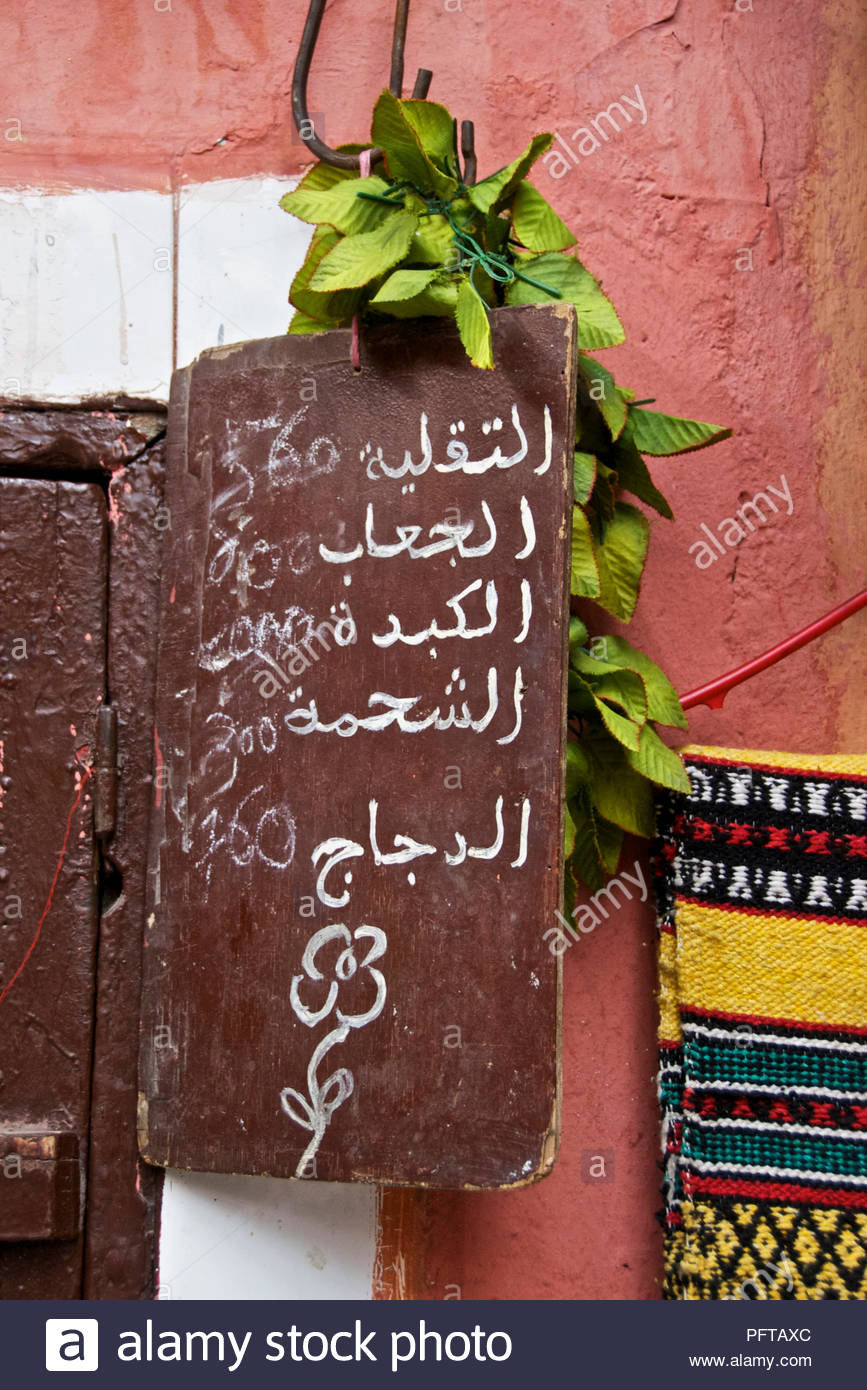 التقلية 560
الجعاب 800
الكبدة
الشحمة 300
الدجاج 160
alamy
a alamy stock photo
PFTAXC
www.alamy.com